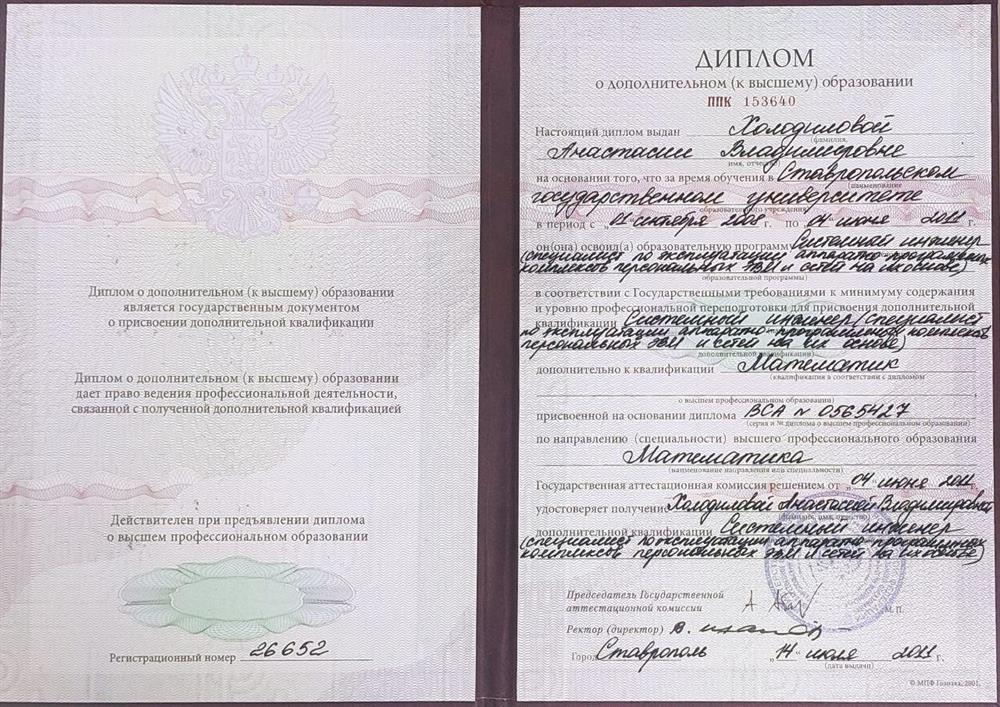 Диплом о дополнительном (к высшему) образовании
является государственным документом
о присвоении дополнительной квалификации
Диплом о дополнительном (к высшему) образовании
дает право ведения профессиональной деятельности,
связанной с полученной дополнительной квалификацией
Действителен при предъявлении диплома
о высшем профессиональном образовании
Регистрационный номер 26652
ДИПЛОМ
о дополнительном (к высшему) образовании
ППК 153640
Настоящий диплом выдан Холодиловой
(фамилия,
Анастасии Владимировне
имя, отчество)
на основании того, что за время обучения в Ставропольском
(наименование
государственном университете
образовательного учреждения)
в период с „01“ сентября 2008 г. по „04“ июня 2011 г.
он(она) освоил(а) образовательную программу Системный инженер
(специалист по эксплуатации аппаратно-программных
комплексов персональных ЭВМ и сетей на их основе)
образовательной программы)
в соответствии с Государственными требованиями к минимуму содержания
и уровню профессиональной переподготовки для присвоения дополнительной
квалификации Системный инженер (специалист
по эксплуатации аппаратно-программных комплексов
персональных ЭВМ и сетей на их основе)
дополнительной квалификации)
дополнительно к квалификации Математик
(квалификация в соответствии с дипломом
о высшем профессиональном образовании)
присвоенной на основании диплома ВСА № 0565427
(серия и № диплома о высшем профессиональном образовании)
по направлению (специальности) высшего профессионального образования
Математика
(наименование направления или специальности)
Государственная аттестационная комиссия решением от „04“ июня 2011
удостоверяет получение Холодиловой Анастасией Владимировной
(фамилия, имя, отчество)
дополнительной квалификации Системный инженер
(специалист по эксплуатации аппаратно-программных
комплексов персональных ЭВМ и сетей на их основе)
Председатель Государственной
аттестационной комиссии
М. П.
Ректор (директор)
Город Ставрополь „14“ июля 2011 г.
(дата выдачи)
© МПФ Гознака, 2001.